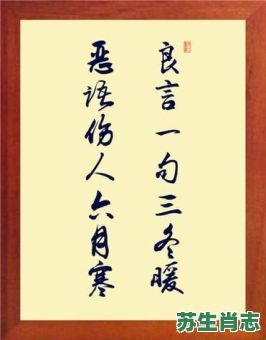 良言一句三冬暖
恶语伤人六月寒
苏生肖志